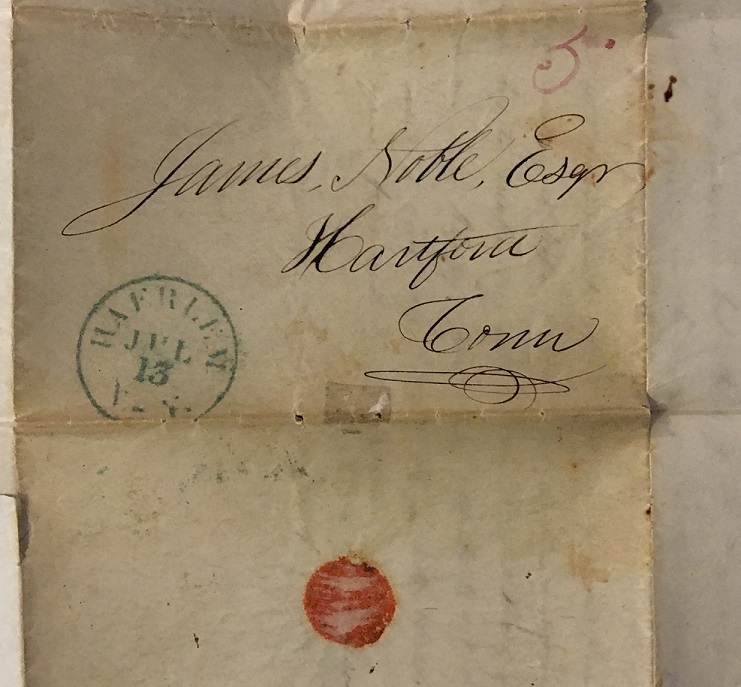 5
James, Noble, Esqr
Hartford
Conn
HAERLEM
JUL
13
N.Y.